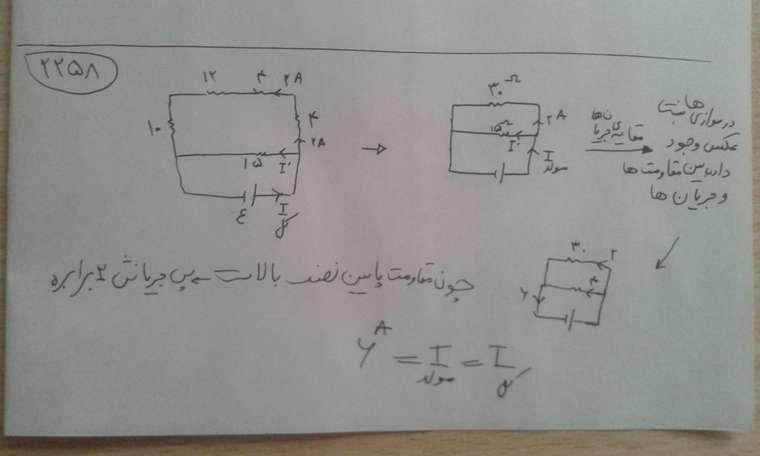 ۲۲۵۸
۱۲ ۴ ۲A
۱۰ ۴
۲A
۱۵ I'
ε I
کل
۳۰ Ω
۲A
۱۵Ω
I'
I
مولد
مقایسه‌ی جریان‌ها
در موازی‌ها نسبت
عکس وجود
دارد بین مقاومت‌ها
و جریان‌ها
۳۰ ۲
۴
۶
چون مقاومت پایین نصف بالاست پس جریانش ۲ برابره
۶A = I = I
مولد کل